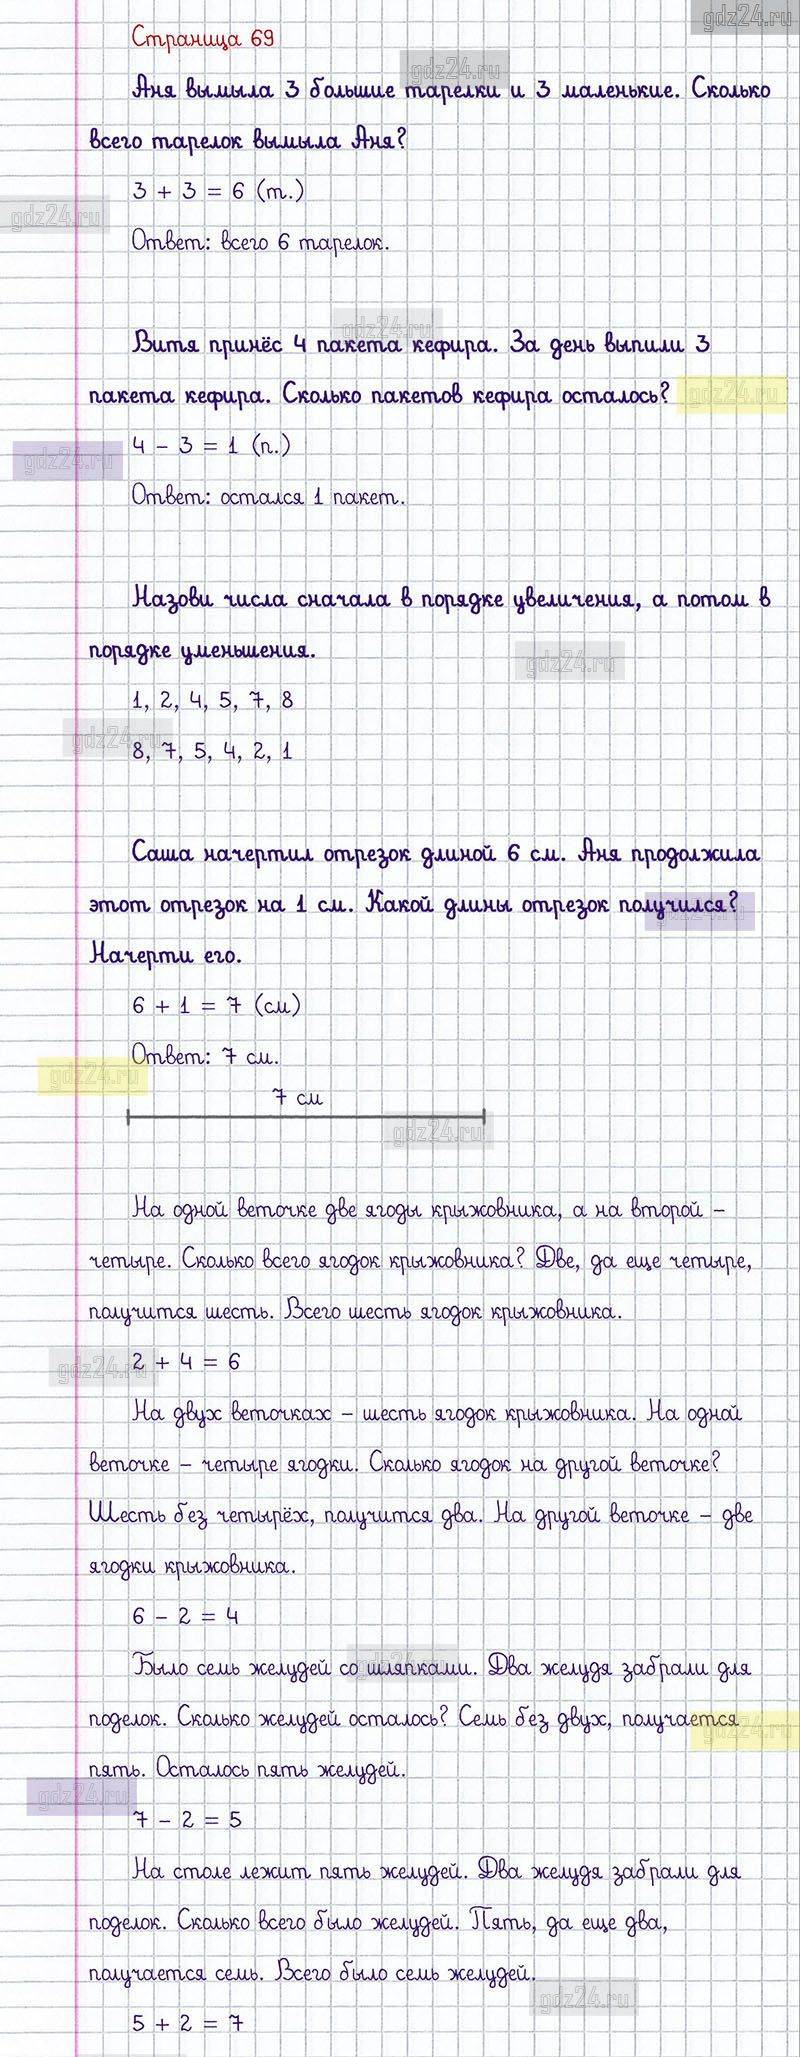 gdz24.ru
Страница 69
gdz24.ru
Аня вымыла 3 большие тарелки и 3 маленькие. Сколько
всего тарелок вымыла Аня?
3 + 3 = 6 (т.)
gdz24.ru
Ответ: всего 6 тарелок.
gdz24.ru
Витя принёс 4 пакета кефира. За день выпили 3
пакета кефира. Сколько пакетов кефира осталось?
gdz24.ru
4 - 3 = 1 (п.)
gdz24.ru
Ответ: остался 1 пакет.
Назови числа сначала в порядке увеличения, а потом в
порядке уменьшения.
gdz24.ru
1, 2, 4, 5, 7, 8
gdz24.ru
8, 7, 5, 4, 2, 1
Саша начертил отрезок длиной 6 см. Аня продолжила
этот отрезок на 1 см. Какой длины отрезок получился?
gdz24.ru
Начерти его.
6 + 1 = 7 (см)
Ответ: 7 см.
gdz24.ru
7 см
gdz24.ru
На одной веточке две ягоды крыжовника, а на второй –
четыре. Сколько всего ягодок крыжовника? Две, да еще четыре,
получится шесть. Всего шесть ягодок крыжовника.
gdz24.ru
2 + 4 = 6
На двух веточках – шесть ягодок крыжовника. На одной
веточке – четыре ягодки. Сколько ягодок на другой веточке?
Шесть без четырёх, получится два. На другой веточке – две
ягодки крыжовника.
6 - 2 = 4
gdz24.ru
Было семь желудей со шляпками. Два желудя забрали для
поделок. Сколько желудей осталось? Семь без двух, получается
gdz24.ru
пять. Осталось пять желудей.
gdz24.ru
7 - 2 = 5
На столе лежит пять желудей. Два желудя забрали для
поделок. Сколько всего было желудей. Пять, да еще два,
получается семь. Всего было семь желудей.
gdz24.ru
5 + 2 = 7